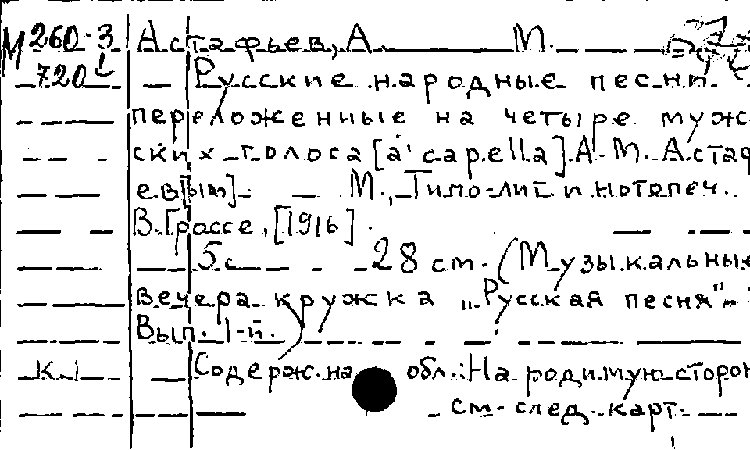 М 260-3 Астафьев, А. М.
720 Русские народные песни
переложенные на четыре муж-
ских голоса [a' capella] А. М. Астаф
ев[ым]. М., Типо-лит. и нотопеч.
В. Гроссе, [1916].
5 с. 28 см. (Музыкальные
вечера кружка „Русская песня"
Вып. 1-й.)
к.1 Содерж. на обл.: На родимую сторон
см. след. карт.